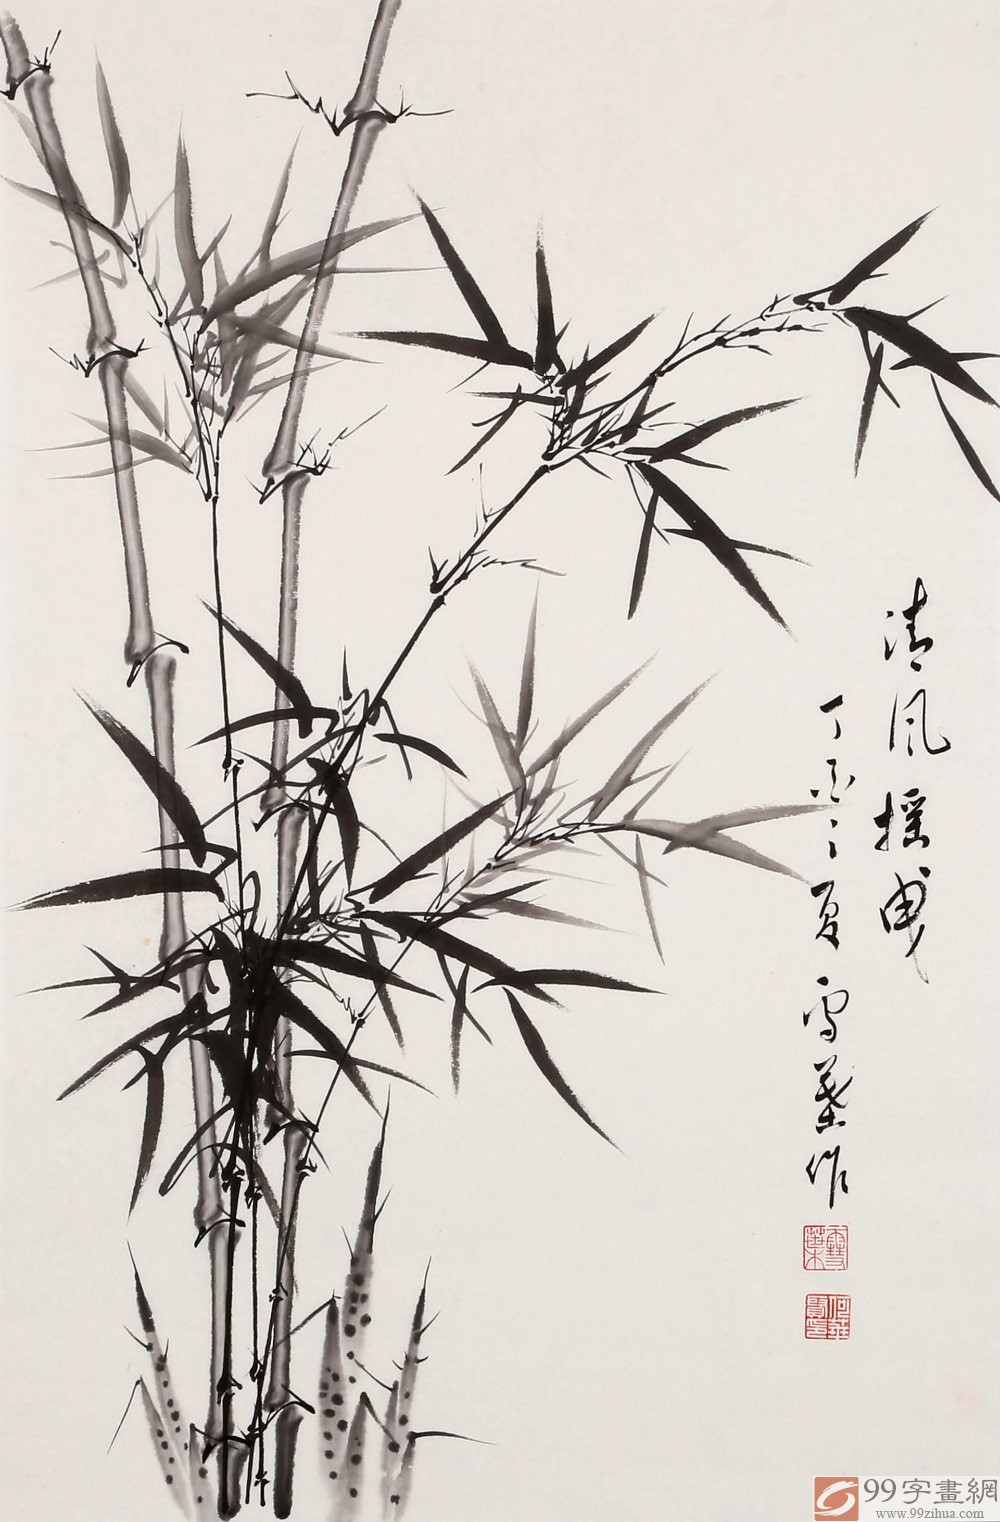 清风摇曳
丁亥之夏雪葉作
99字畫網
www.99zihua.com